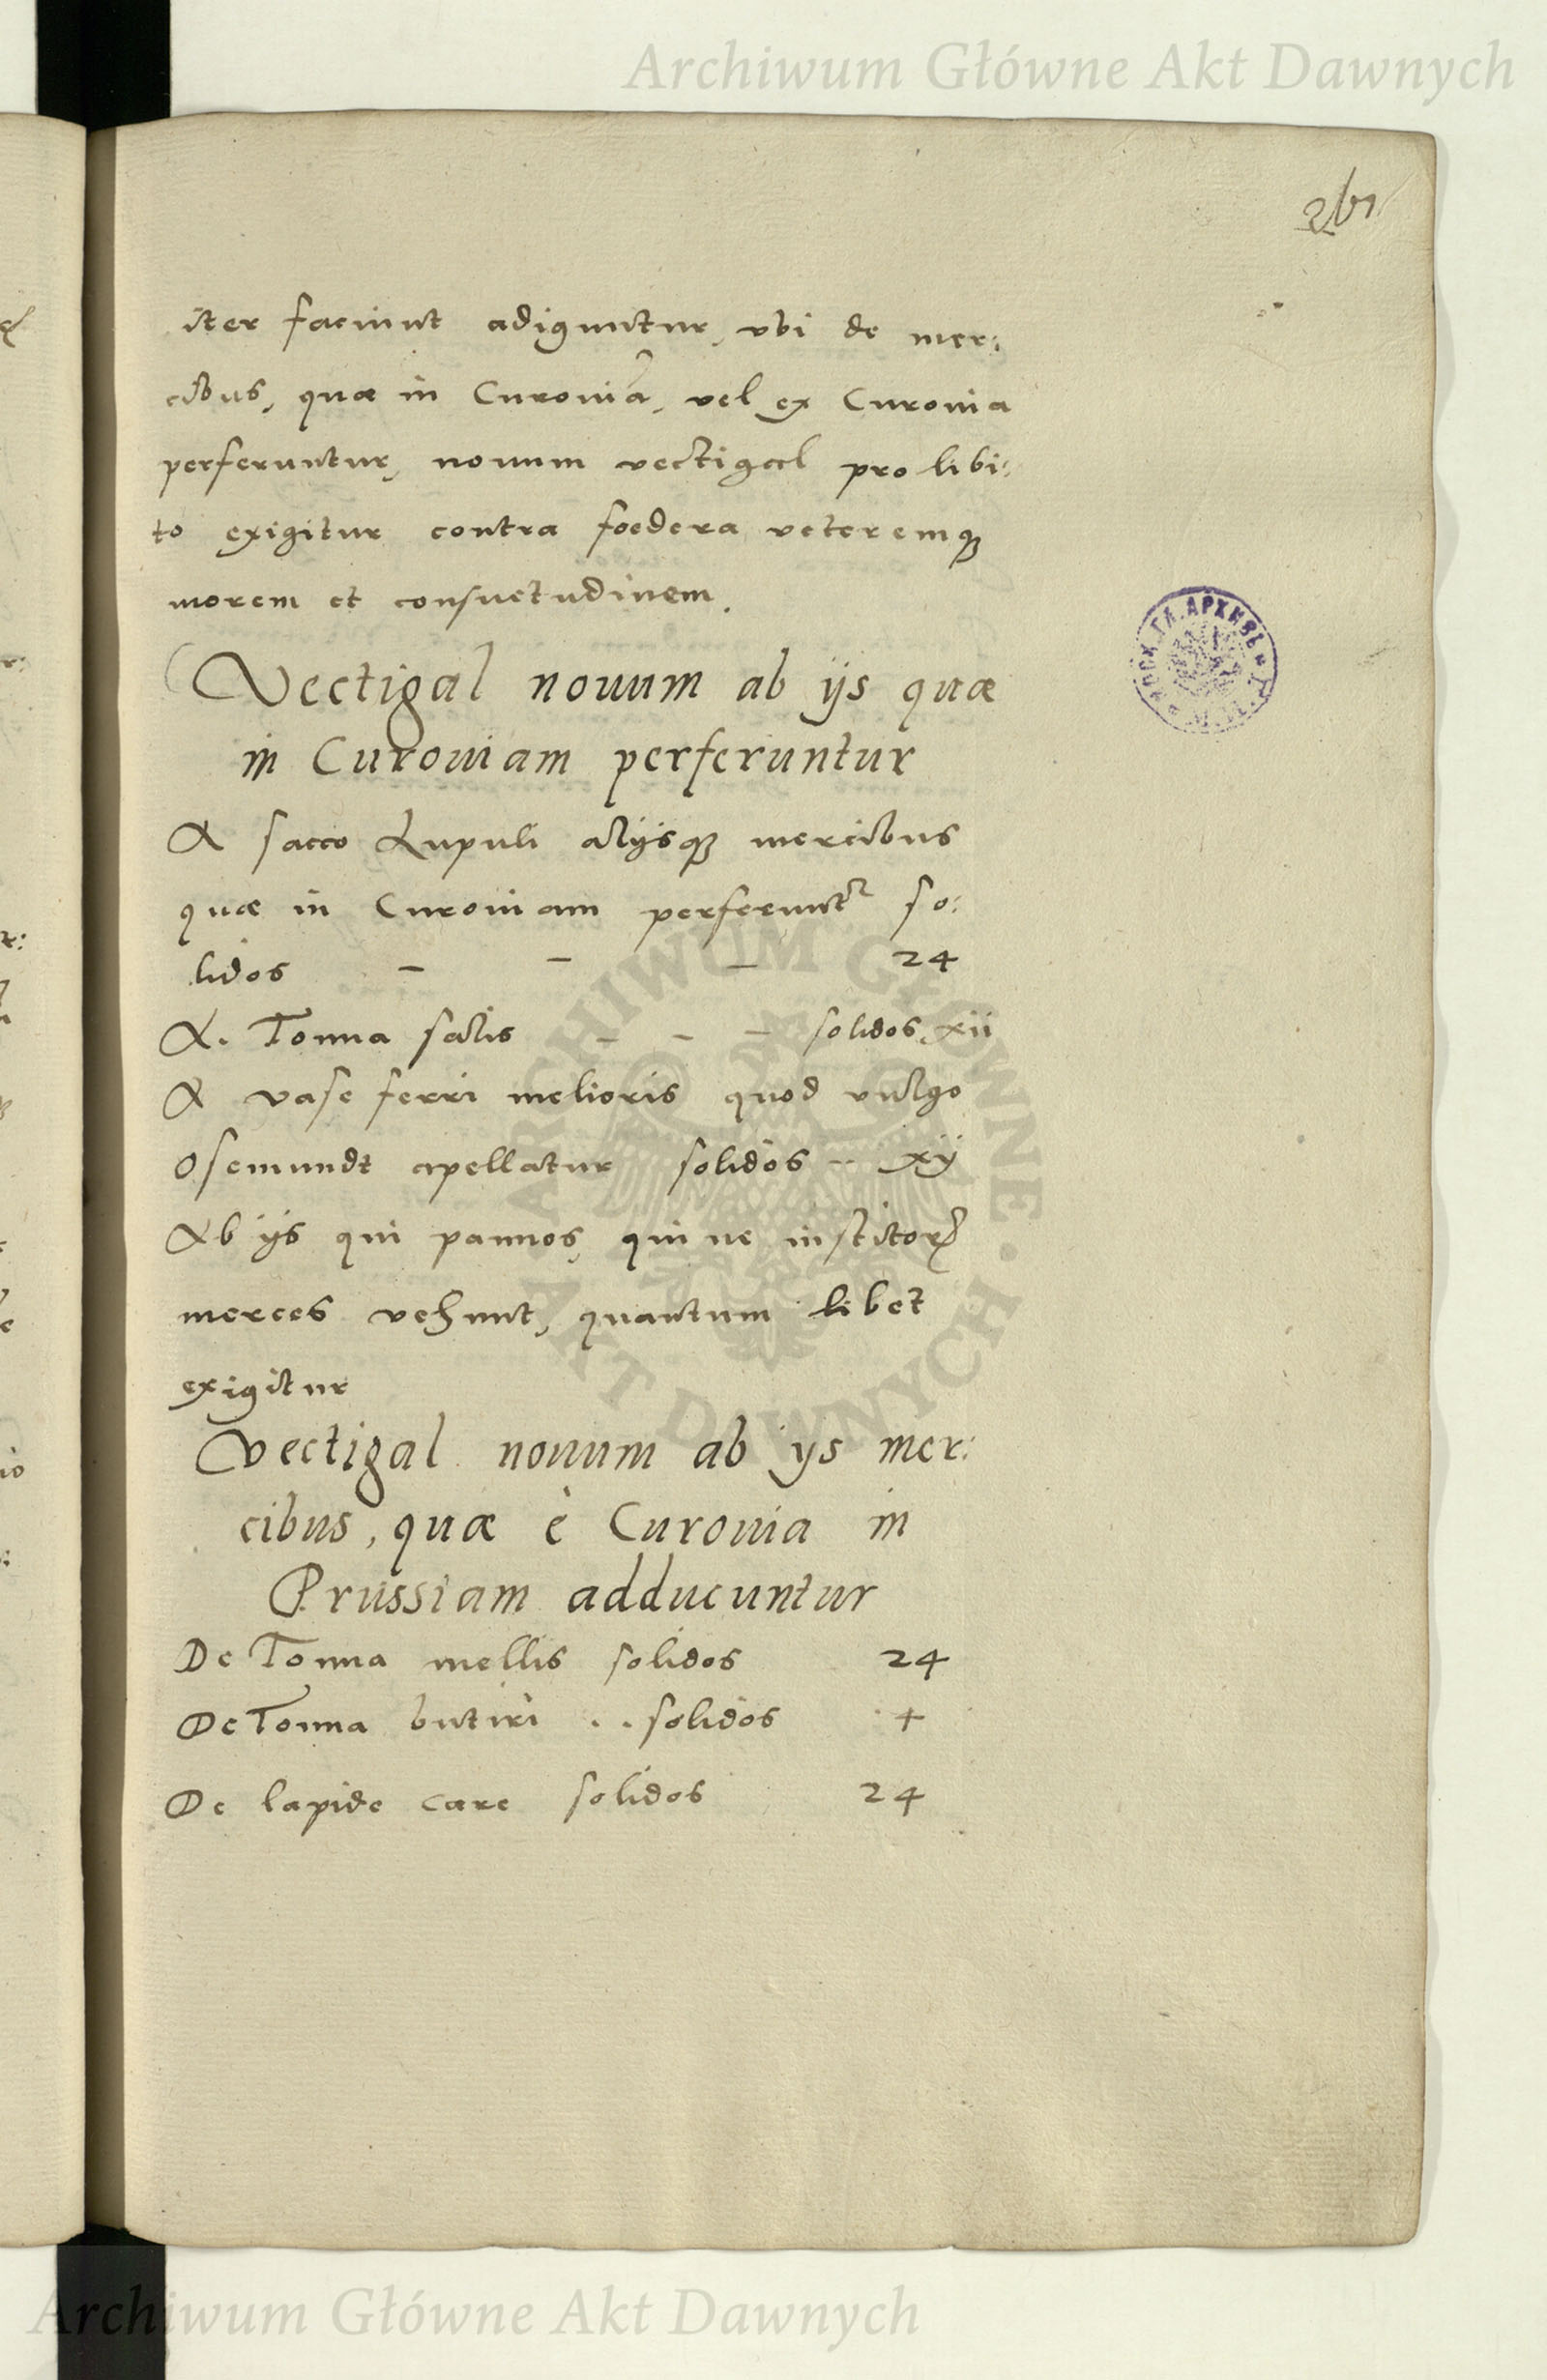 Archiwum Główne Akt Dawnych
iter faciunt adiguntur, vbi de mer:
cibus, quæ in Curoniã, vel ex Curonia
perferuntur, nouum vectigal pro libi:
to exigitur contra foedera veteremqꝫ
morem et consuetudinem.
Vectigal nouum ab ijs quæ
in Curoniam perferuntur
A sacco Lupuli alijsqꝫ mercibus
quæ in Curoniam perferunt᷑ so:
lidos – – – 24
A. Tonna salis – – – solidos xii
A vase ferri melioris quod vulgo
Osemundt apellatur solidos -- xij
Ab ijs qui pannos, qui ne institorꝭ
merces vehunt, quantum libet
exigitur
Vectigal nouum ab ijs mer:
cibus, quæ è Curonia in
Prussiam adducuntur
De Tonna mellis solidos 24
De Tonna butiri .. solidos +
De lapide cære solidos 24
ARCHIWUM GŁÓWNE AKT DAWNYCH
Archiwum Główne Akt Dawnych